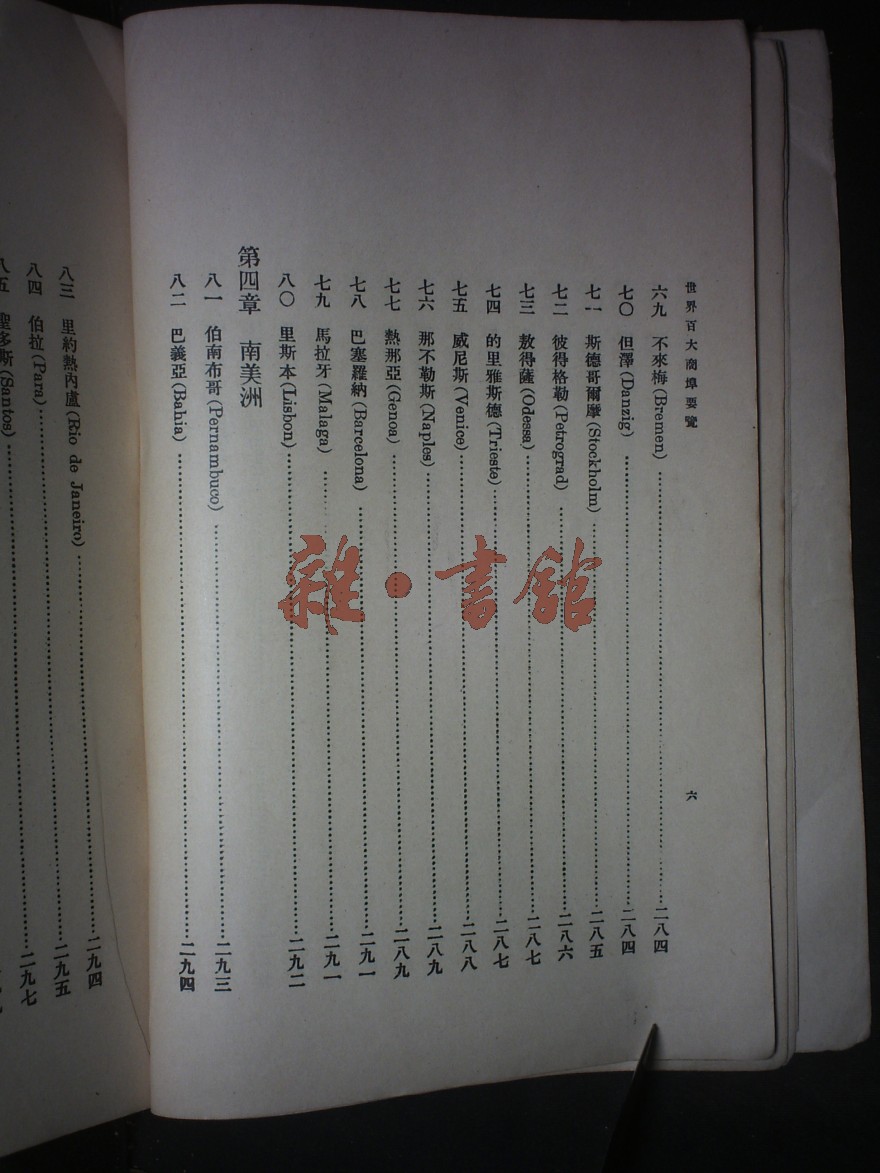 世界百大商埠要覽
六
六九 不來梅(Bremen)……二八四
七〇 但澤(Danzig)……二八四
七一 斯德哥爾摩(Stockholm)……二八五
七二 彼得格勒(Petrograd)……二八六
七三 敖得薩(Odessa)……二八七
七四 的里雅斯德(Trieste)……二八七
七五 威尼斯(Venice)……二八八
七六 那不勒斯(Naples)……二八九
七七 熱那亞(Genoa)……二八九
七八 巴塞羅納(Barcelona)……二九一
七九 馬拉牙(Malaga)……二九一
八〇 里斯本(Lisbon)……二九二
第四章 南美洲
八一 伯南布哥(Pernambuco)……二九三
八二 巴義亞(Bahia)……二九四
八三 里約熱內盧(Rio de Janeiro)……二九四
八四 伯拉(Para)……二九五
八五 聖多斯(Santos)……二九七
雜·書館